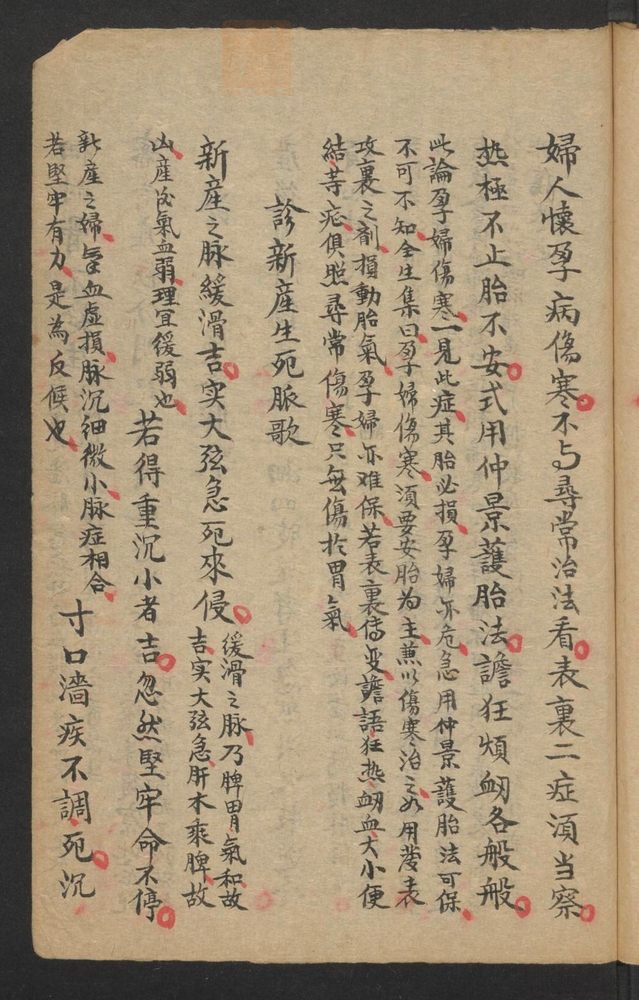 婦人懷孕病傷寒不与尋常治法看表裏二症須当察
热極不止胎不安式用仲景護胎法譫狂煩衂各般般
此論孕婦傷寒一見此症其胎必損孕婦亦危急用仲景護胎法可保
不可不知全生集曰孕婦傷寒須要安胎为主蒸以傷寒治之如用發表
攻裏之剤損動胎氣孕婦亦难保若表裏傳变譫語狂热衂血大小便
結等症俱照尋常傷寒只無傷於胃氣
診新産生死脈歌
新産之脉緩滑吉实大弦急死來侵
緩滑之脉乃脾胃氣和故
吉实大弦急肝木乘脾故
凶産後氣血弱理宜緩弱也
若得重沉小者吉忽然堅牢命不停
新産之婦氣血虛損脉沉细微小脉症相合
若堅牢有力是為反候也
寸口濇疾不調死沉